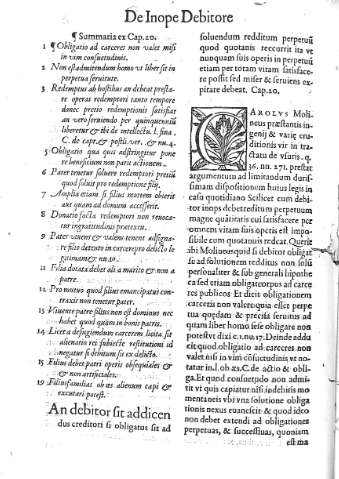 De Inope Debitore
¶ Summaria ex Cap. 20.
1 ¶ Obligatio ad carcerem non valet nisi
in vim consuetudinis.
2 Non est admittendum homo vt liber sit in
perpetua seruitute.
3 Redemptus ab hostibus an debeat præsta-
re operas redemptori tanto tempore
donec pretio redemptionis satisfiat
an vero seruiendo per quinquennium
liberetur & ibi de intellectu. l. fina.
C. de capt. & postli. ver. & nu. 4.
5 Obligatio qua quis adstringitur pone
re beneficium non parit actionem.
6 Pater tenetur soluere redemptori pretiũ
quod soluit pro redemptione filij.
7 Amplia etiam si filius mortem obierit
aut quam ad domum accesserit.
8 Donatio facta redemptori non reuoca-
tur ingratitudinis prætextu.
9 Pater vinens & valens tenetur
filie detentæ in carcere pro delicto
11 Filia dotata debet ali a marito & non a
patre.
12 Pro motuo quod filius emancipatus con-
traxit non tenetur pater.
13 Viuente patre filius non est dominus nec
habet quod suum in bonis patris.
14 Licet a desiguendum carcerem
alienatio rei subiectæ restitutioni id
negatur si debitum sit ex delicto.
15 Filius debet patri operis obsequiales &
& non artificiales.
19 Filiusfamilias ob æs alienum capi &
excutiari potest.
An debitor sit addicen
dus creditori si obligatus sit ad
soluendum redditum perpetuũ
quod quotanis reccurrit ita vt
nunquam suis operis in perpetu
etiam per totam vitam satisface-
re possit sed miser & seruiens ex
pirare debeat. Cap. 20.
CAROLVS Moli-
neus præstantis in-
genij & varię eru-
ditionis vir in tra-
ctatu de vsuris. q.
36. nu. 271. prestat
argumentum ad limitandum durif-
simam dispositionem huius legis in
casu quotidiano Scilicet cum debi-
tor inops debet redditum perpetuum
magne quantitatis cui satisfacere per
omnem vitam suis operis est impos-
sibile cum quotanis redeat. Querit
ibi Molioneus quid si debitor obliget
se ad solutionem redditus non solũ
personaliter & sub generali hipothe
ca sed etiam obliget corpus ad carce
res publicos Et dicit obligationem
carceris non valere quia esset perpe
tua quędam & precisa seruius ad
quam liber homo sese obligare non
potest vt dixi c. 1. nu. 17. Deinde adde
cit quod obligatio ad carceres non
valet nisi in vim cõsuetudinis vt no-
tatur in l. ob æs. C. de actio & obli-
ga. Et quod consuetudo non admit-
tit vt quis capiatur nisi in debitis mo
mentaneis vbi vna solutione obliga
tionis nexus euanescit & quod ideo
non debet extendi ad obligationes
perpetuas, & successiuas, quoniam
est ma